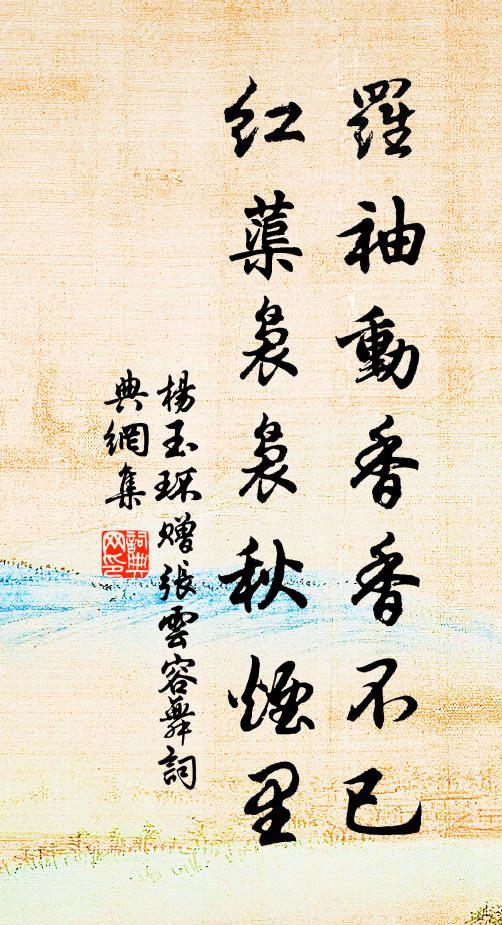 羅袖動香香不已
紅蕖裊裊秋煙里
楊玉珠贈張雲容舞詞
典網集
詞典
网印